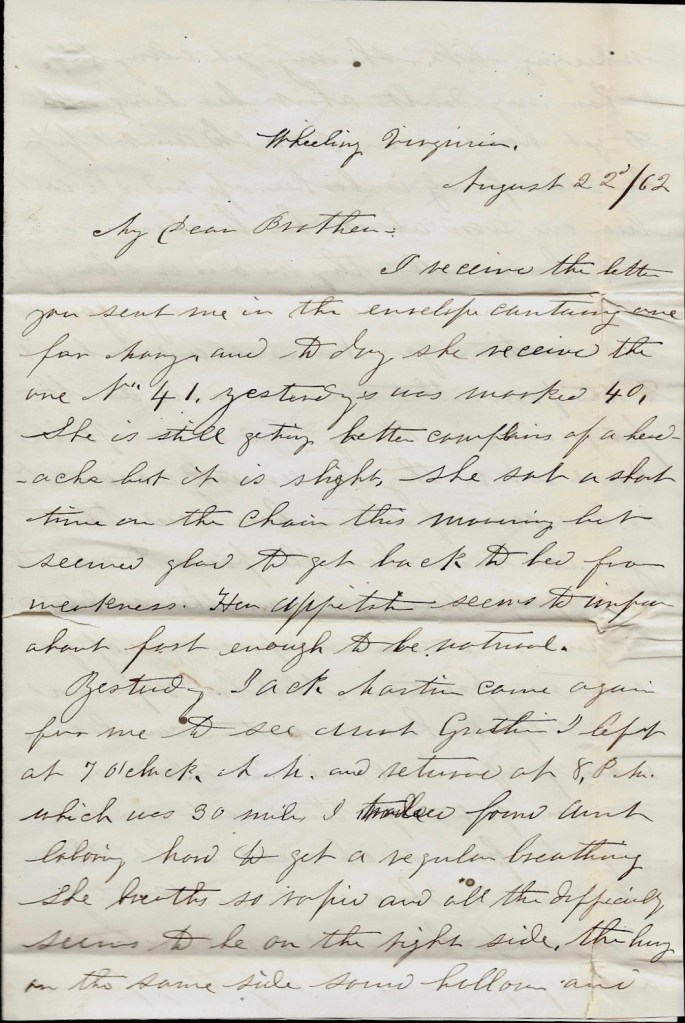 Wheeling Virginia.
August 22d/62
My Dear Brother-
I receive the letter
you sent me in the envelope containing one
for Mary, and to day she receive the
one No. 41. yesterdays was marked 40,
She is still geting better complains of a head-
-ache but it is slight, she sat a short
time on the Chair this morning but
seemed glad to get back to bed from
weakness. Her appetite seems to improve
about fast enough to be natural.
Yesterday Jack Martin came again
for me to see Aunt I left
at 7 O'clock. A M. and returned at 8, P.M.
which was 30 miles I found Aunt
laboring hard to get a regular breathing
She breaths so rapid and all the difficulty
seems to be on the right side, the lung
on the same side sound hollow and